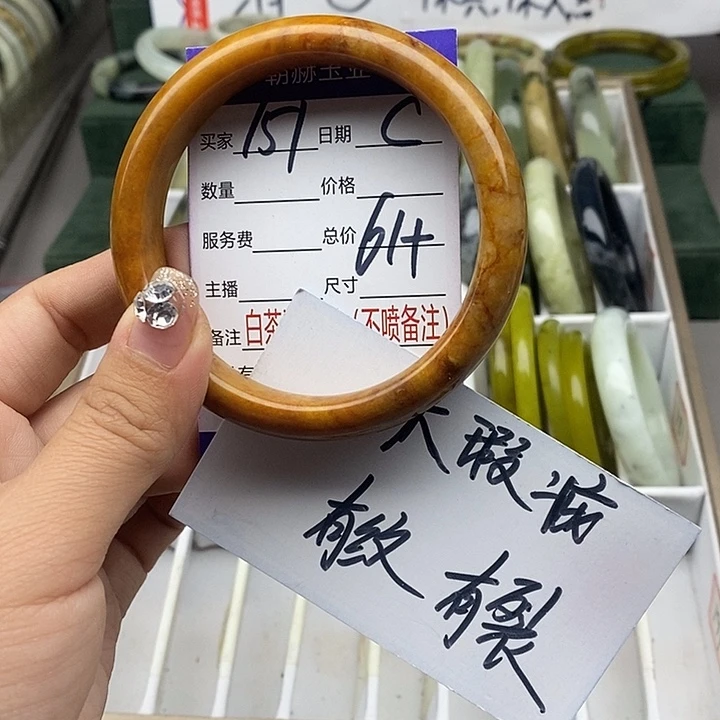 朝赫玉业
买家 151 日期 C
数量 价格
服务费 总价 64
主播 尺寸
备注 白茶 (不喷备注)
大瑕疵
有纹
有裂